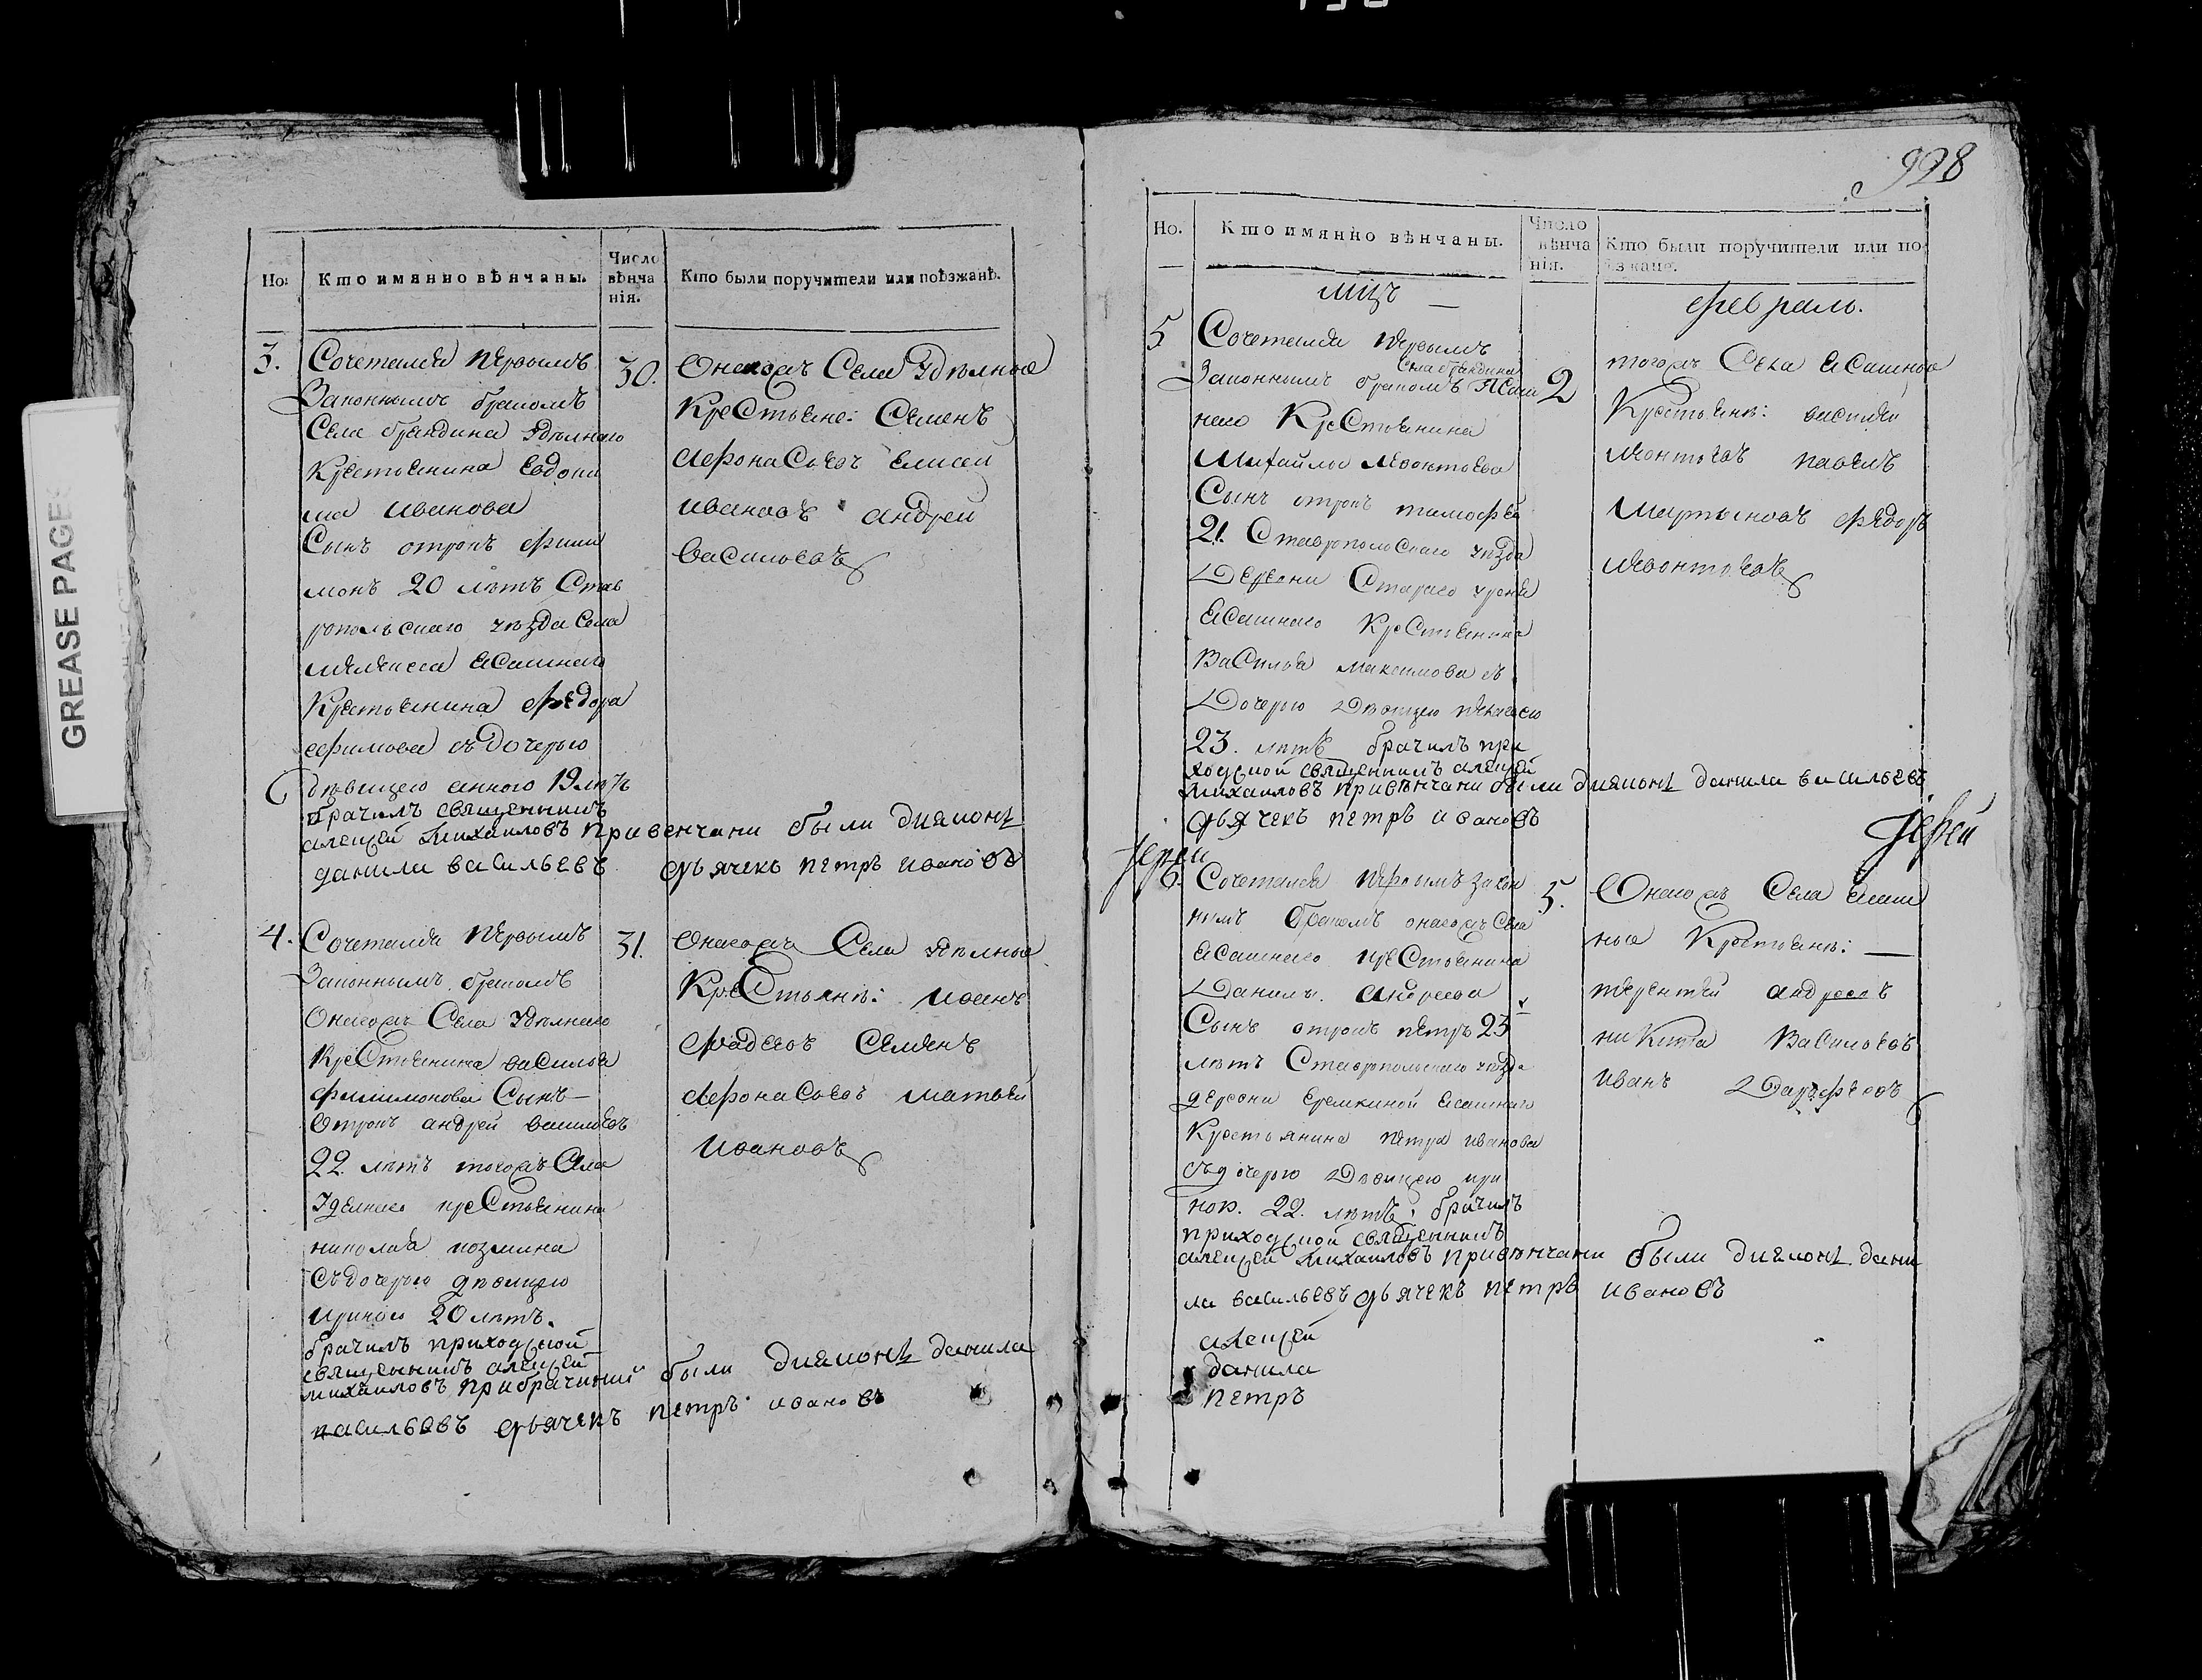 928
Но:
Кто имянно вѣнчаны.
Число
вѣнча
нія.
Кто были поручители или поѣзжанѣ.
3.
Сочетался первымъ
Законнымъ бракомъ
Села брандина удѣлнаго
Крестьенина Евдоки
ма Иванова
Сынъ отрокъ Фили
монъ 20 лѣтъ Став
ропольскаго уѣзда Села
мелекеса ясашнаго
Крестьенина Федора
ефимова съ дочерью
девицею анною 19 лѣтъ
брачилъ священникъ
алексей Михаиловъ при венчани были дияконъ
данила васильевъ дьячекъ петръ ивановъ
30.
Онагожъ Села Удѣлное
КреСтьене: Семенъ
Афонасьевъ Елисеи
ивановъ андреи
Васильевъ
4.
Сочетался первымъ
Законнымъ бракомъ
Онагожъ Села Удѣлнаго
КреСтьенина василья
филимонова Сынъ
Отрокъ андрей васильевъ
22 лѣтъ тогожъ Села
Удѣлнаго креСтьенина
николая козмина
Съ дочерью девицею
ириною 20 лѣтъ.
брачилъ приходской
священникъ алексей
михаиловъ при брачини были диякон данила
васильевъ дьячекъ петръ ивановъ
31.
Онагожъ Села Удѣлное
КреСтьянѣ: Иванъ
Фадеевъ Семенъ
Афонасьевъ матвей
Ивановъ
Но.
Кто имянно вѣнчаны.
Число
вѣнча
нія.
Кто были поручители или по
ѣзжане.
мцъ
февраль.
5
Сочетался первымъ
Села брандина
Законнымъ бракомъ Ясаш
наго КреСтьенина
Михайлы Леонтьева
Сынъ отрокъ тимофей
21 Ставропольскаго уѣзда
Деревни Стараго
ясашнаго КреСтьенина
ВаСилья максимова съ
Дочерью Девицею пелагеею
23. лѣтъ брачилъ при
ходской священникъ алексей
Михаиловъ при вѣнчани были диякон данила васильевъ
дьячекъ петръ ивановъ
2
тогожъ Села ясашное
Крестьенѣ: василей
леонтьевъ павелъ
Мартыновъ Федоръ
Леонтьевъ
Иерей
Иерей
6.
Сочетался первымъ закон
нымъ бракомъ онагожъ Села
ясашнаго креСтьенина
Данилы андреева
Сынъ отрокъ петръ 23
лѣтъ Ставропольскаго уѣзда
деревни Еремкиной ясашнаго
Крестьянина петра иванова
съ дочерью Девицею ири
ною. 22. лѣтъ: брачилъ
приходской священникъ
алексей михаиловъ при вѣнчани были диякон дани
ла васильевъ дьячекъ петръ ивановъ
алексей
данила
петръ
5.
Онагожъ Села ясаш
ные Крестьенѣ:
терентей андреевъ
никита Васильевъ
иванъ Дарофеевъ
GREASE PAGES